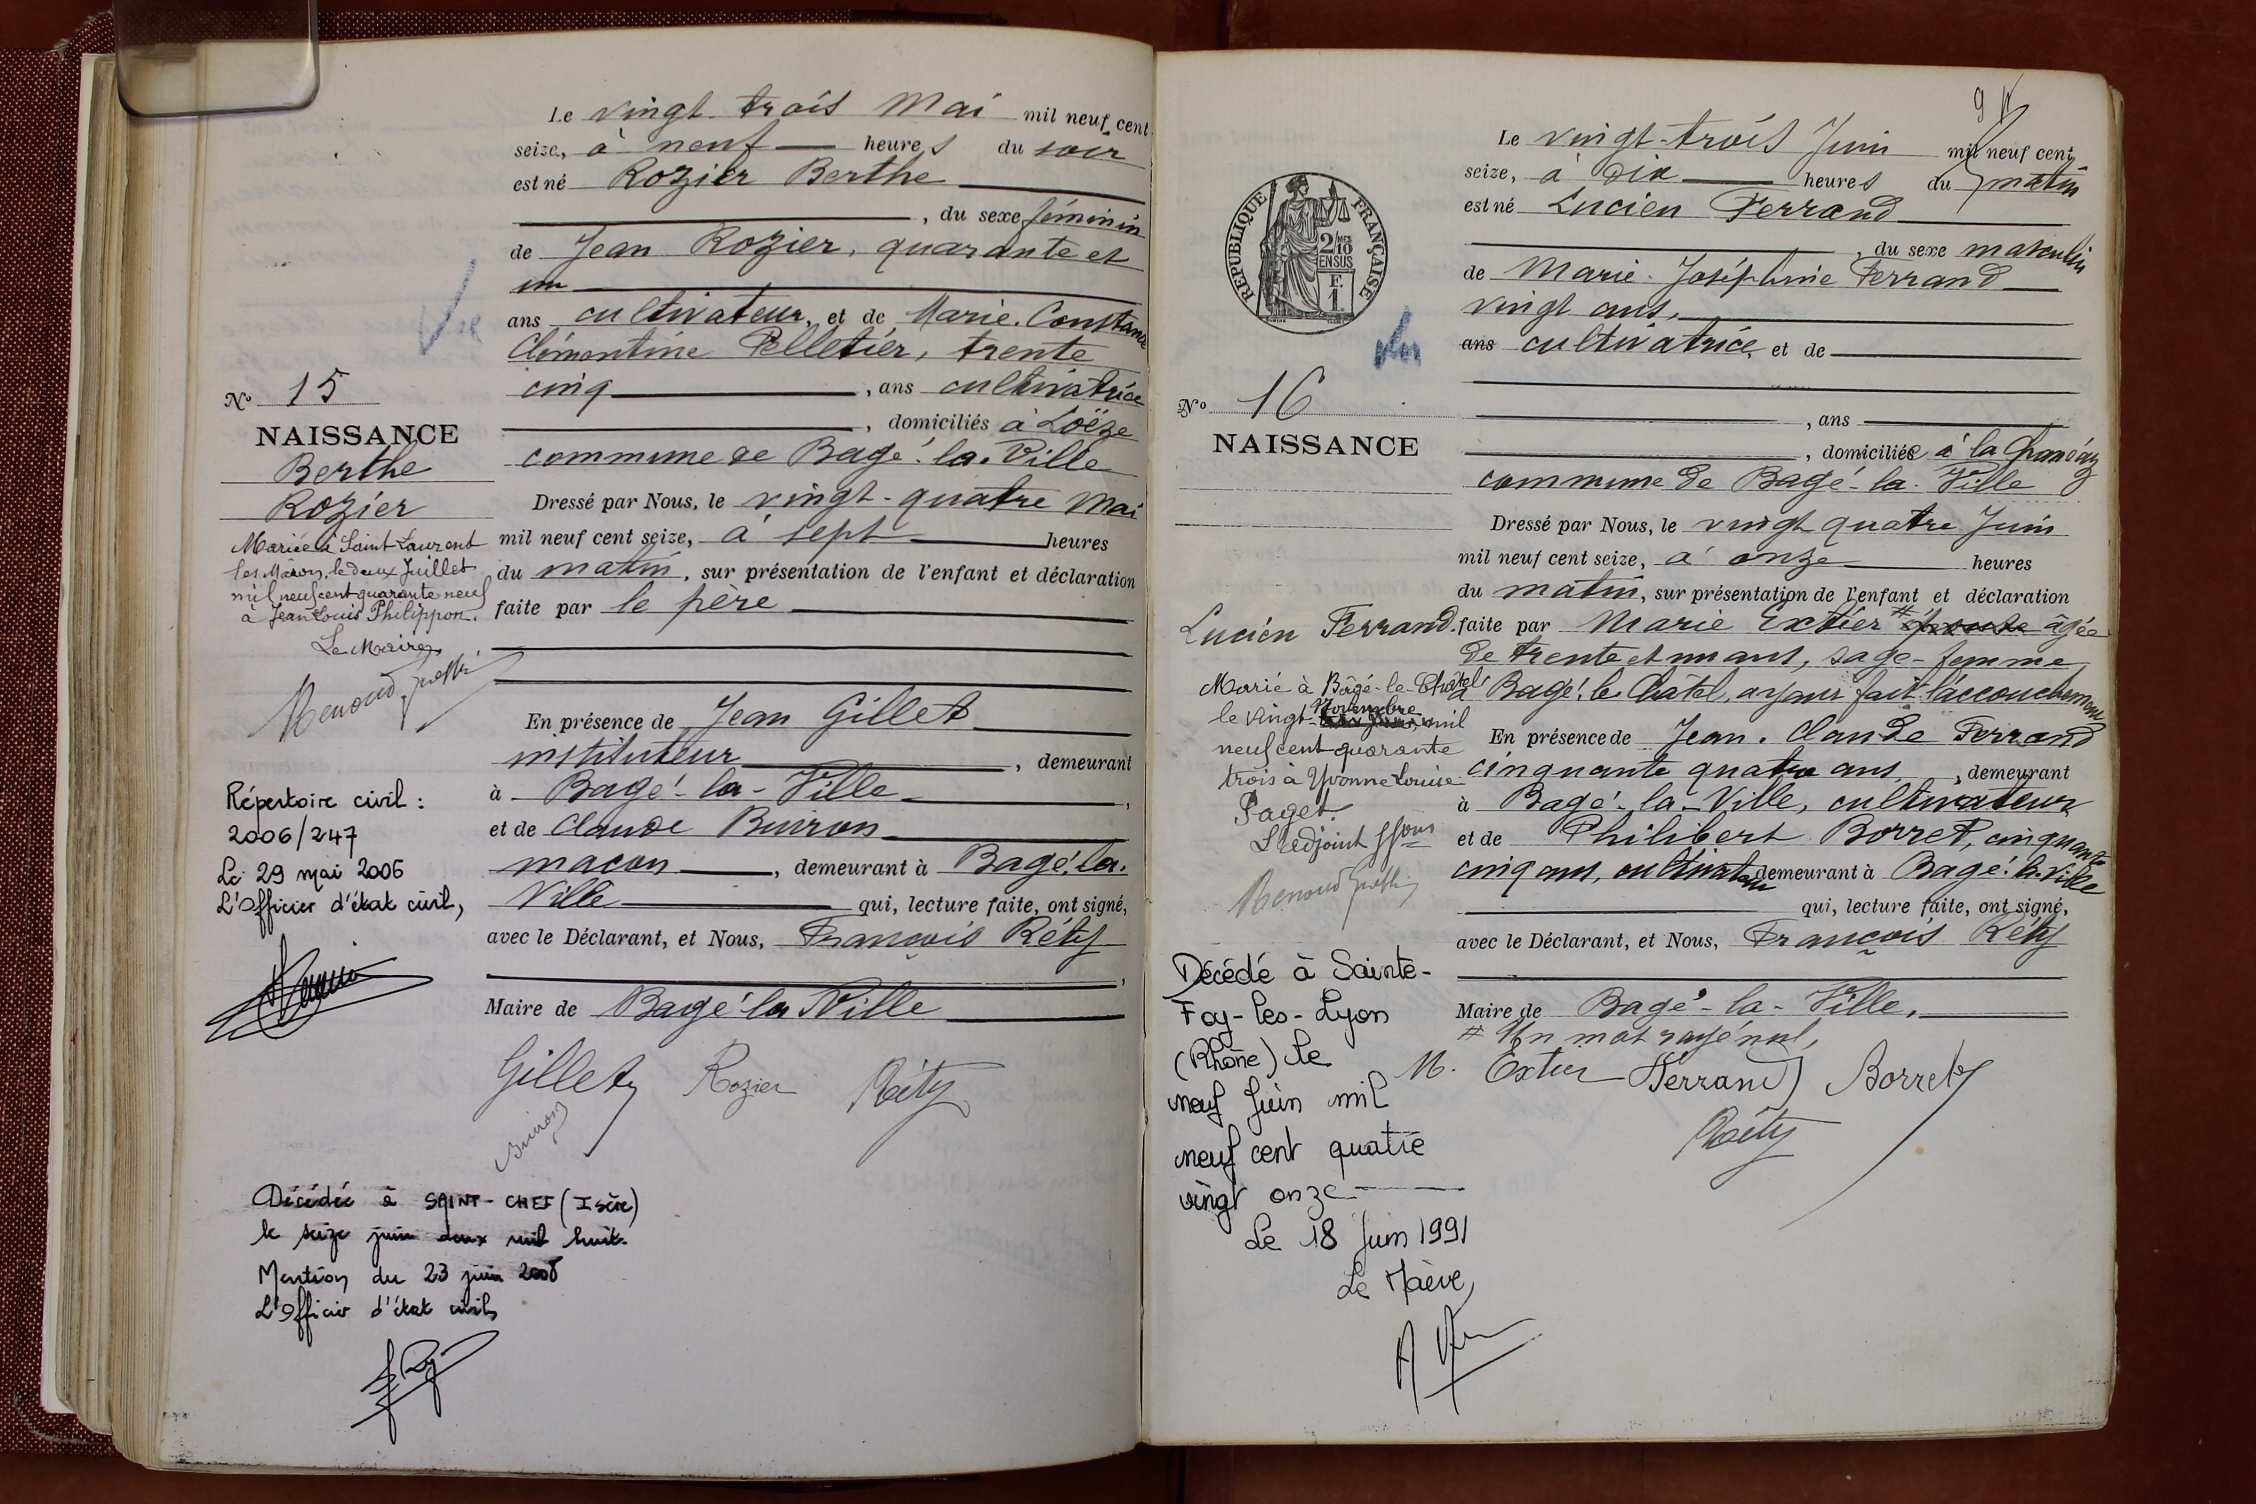 Le vingt-trois Mai mil neuf cent
seize, à neuf heures du soir
est né Rozier Berthe
, du sexe féminin
de Jean Rozier, quarante et
un
ans cultivateur, et de Marie Constance
Clémentine Pelletier, trente
cinq , ans cultivatrice
, domiciliés à Loëze
commune de Bagé-la-Ville
Dressé par Nous, le vingt-quatre Mai
mil neuf cent seize, à sept heures
du matin, sur présentation de l'enfant et déclaration
faite par le père
En présence de Jean Gillet
instituteur , demeurant
à Bagé-la-Ville ,
et de Claude Burron
maçon , demeurant à Bagé-la-
Ville qui, lecture faite, ont signé,
avec le Déclarant, et Nous, François Réty
,
Maire de Bagé-la-Ville
Gillet Rozier Réty
Burron
Vu
No 15
NAISSANCE
Berthe
Rozier
Mariée à Saint Laurent
les Mâcon, le deux Juillet
mil neuf cent quarante neuf
à Jean Louis Philippon.
Le Maire,
Répertoire civil :
2006/247
Le 29 mai 2006
L'Officier d'état civil,
Décédée à SAINT-CHEF (Isère)
le seize juin deux mil huit.
Mention du 23 juin 2008
L'Officier d'état civil,
9
Le vingt-trois Juin mil neuf cent
seize, à dix heures du matin
est né Lucien Ferrand
, du sexe masculin
de Marie-Joséphine Ferrand
vingt ans,
ans cultivatrice et de
, ans
, domiciliée à la
commune de Bagé-la-Ville
Dressé par Nous, le vingt quatre Juin
mil neuf cent seize, à onze heures
du matin, sur présentation de l'enfant et déclaration
faite par Marie Extier # âgée
de trente et un ans, sage-femme
à Bagé-le-Châtel, ayant fait l'accouchement
En présence de Jean-Claude Ferrand
cinquante quatre ans, , demeurant
à Bagé-la-Ville, cultivateur
et de Philibert Borret, cinquante
cinq ans, cultivateur demeurant à Bagé-la-Ville
qui, lecture faite, ont signé,
avec le Déclarant, et Nous, François Réty
Maire de Bagé-la-Ville,
# Un mot rayé nul,
M. Extier Ferrand Borret
Réty
RÉPUBLIQUE FRANÇAISE
2/10 MES
EN SUS
F.
1
Vu
No 16
NAISSANCE
Lucien Ferrand.
Marié à Bâgé-le-Châtel
le vingt Novembre mil
neuf cent quarante
trois à Yvonne Louise
Paget.
L'adjoint
Décédé à Sainte-
Foy-les-Lyon
(Rhône) le
neuf juin mil
neuf cent quatre
vingt onze
Le 18 juin 1991
Le Maire,